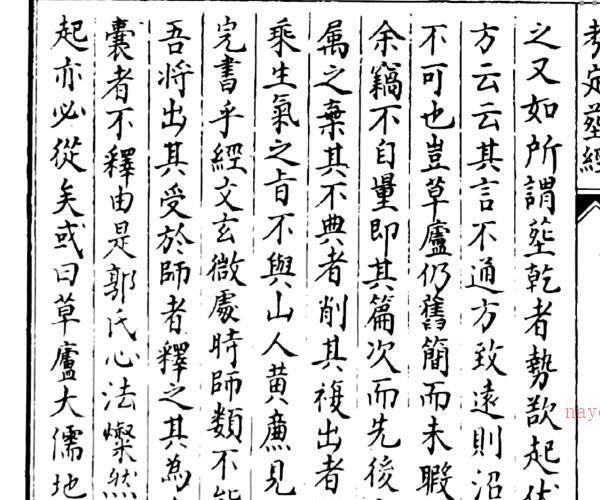 考定葬經
之又如所謂葬乾者勢欲起伏
方云云其言不通方致遠則泥
不可也豈草廬仍舊簡而未暇
余竊不自量即其篇次而先後
屬之棄其不典者削其複出者
乘生氣之旨不與山人黄廉見
完書乎經文玄微處時師類不能
吾將出其受於師者釋之其為
囊者不釋由是郭氏心法燦然
起亦必從矣或曰草廬大儒地
nay